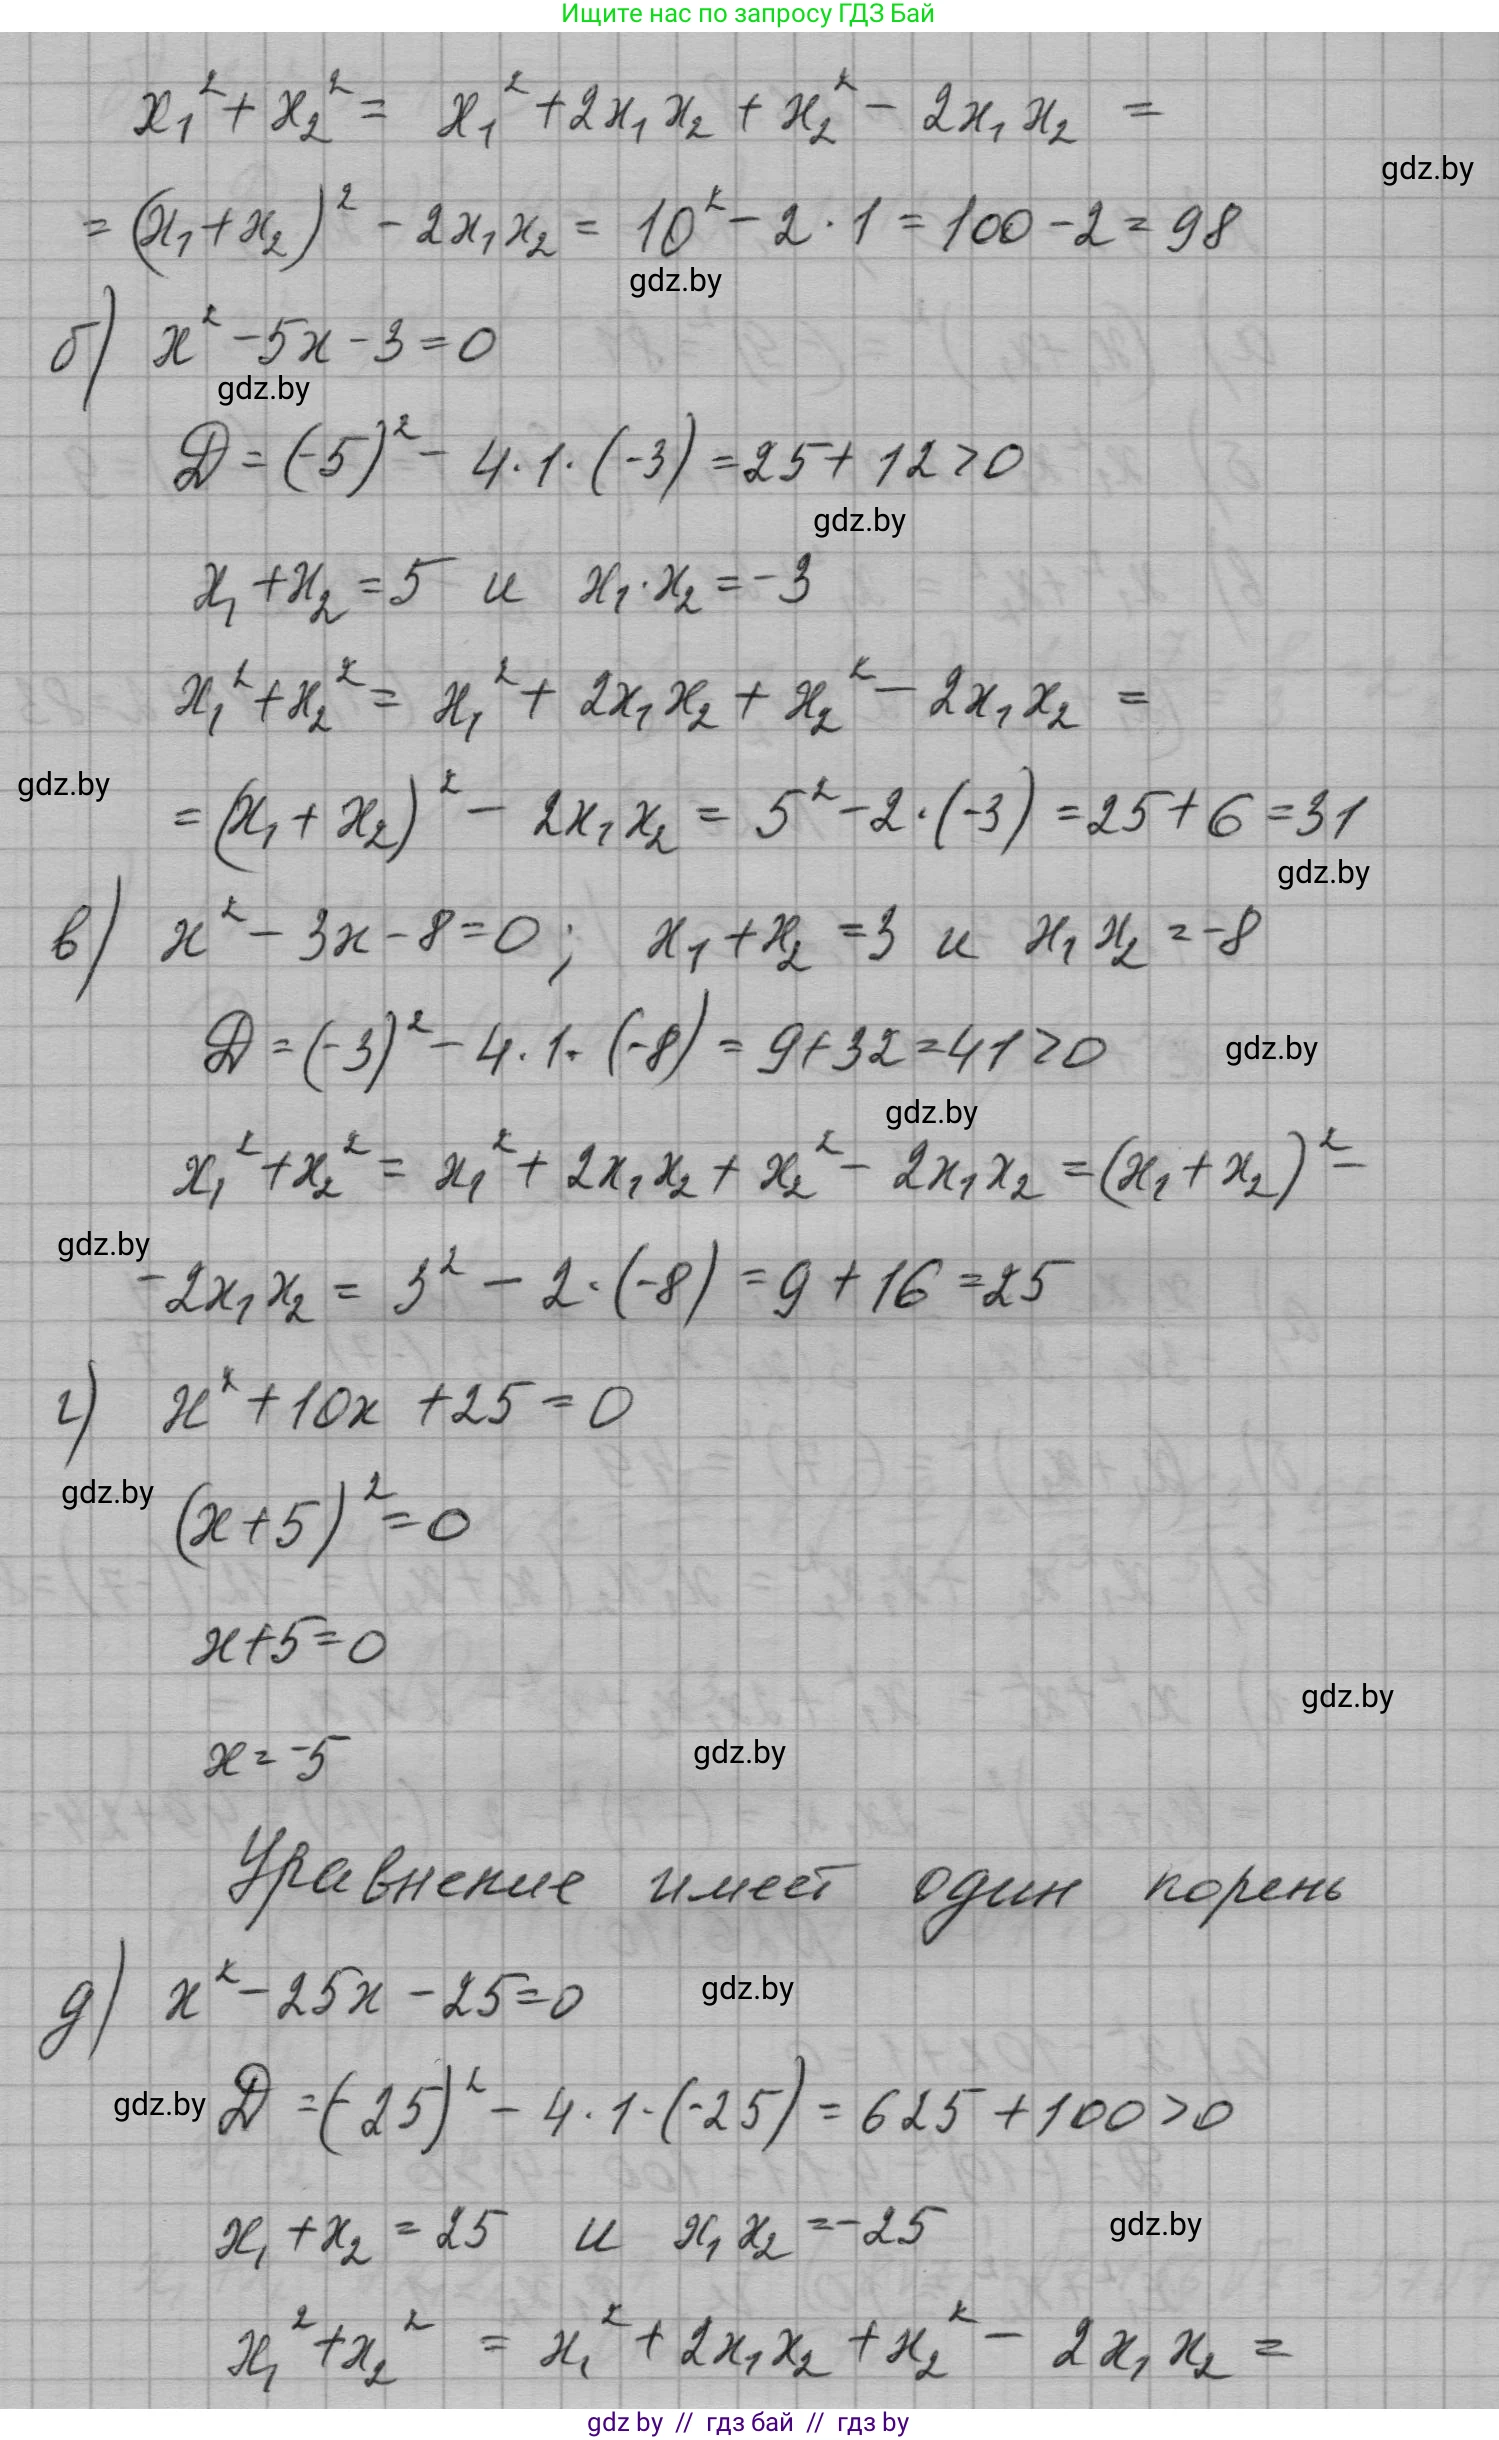 Ищите нас по запросу ГДЗ Бай
x₁² + x₂² = x₁² + 2x₁x₂ + x₂² − 2x₁x₂ =
gdz.by
= (x₁ + x₂)² − 2x₁x₂ = 10² − 2 · 1 = 100 − 2 = 98
gdz.by
б) x² − 5x − 3 = 0
gdz.by
D = (−5)² − 4 · 1 · (−3) = 25 + 12 > 0
gdz.by
x₁ + x₂ = 5 и x₁ · x₂ = −3
x₁² + x₂² = x₁² + 2x₁x₂ + x₂² − 2x₁x₂ =
gdz.by
= (x₁ + x₂)² − 2x₁x₂ = 5² − 2 · (−3) = 25 + 6 = 31
gdz.by
в) x² − 3x − 8 = 0; x₁ + x₂ = 3 и x₁x₂ = −8
D = (−3)² − 4 · 1 · (−8) = 9 + 32 = 41 > 0
gdz.by
gdz.by
x₁² + x₂² = x₁² + 2x₁x₂ + x₂² − 2x₁x₂ = (x₁ + x₂)² −
gdz.by
− 2x₁x₂ = 3² − 2 · (−8) = 9 + 16 = 25
г) x² + 10x + 25 = 0
gdz.by
(x + 5)² = 0
x + 5 = 0
gdz.by
x = −5
gdz.by
Уравнение имеет один корень
д) x² − 25x − 25 = 0
gdz.by
gdz.by
D = (−25)² − 4 · 1 · (−25) = 625 + 100 > 0
x₁ + x₂ = 25 и x₁x₂ = −25
gdz.by
x₁² + x₂² = x₁² + 2x₁x₂ + x₂² − 2x₁x₂ =
gdz by // гдз бай // гдз by